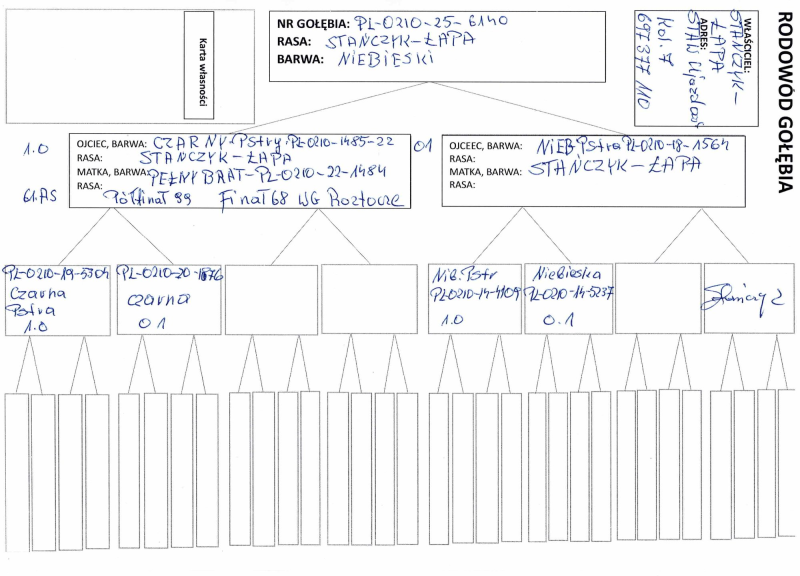 RODOWÓD GOŁĘBIA
Karta własności
NR GOŁĘBIA: PL-0210-25-6140
RASA: STAŃCZYK-ŁAPA
BARWA: NIEBIESKI
WŁAŚCICIEL:
STAŃCZYK-
ŁAPA
ADRES:
STAW Ujazdows
Kol. 7
697377 110
1.0
OJCIEC, BARWA: CZARNY-Pstry PL-0210-1485-22
RASA: STAŃCZYK-ŁAPA
MATKA, BARWA: PEŁNY BRAT-PL-0210-22-1484
RASA:
61.AS
Półfinał 99 Finał 68 WG Roztocze
01
OJCEEC, BARWA: NiEB.Pstra PL-0210-18-1564
RASA: STAŃCZYK-ŁAPA
MATKA, BARWA:
RASA:
PL-0210-19-5304
Czarna
Pstra
1.0
PL-0210-20-1876
czarna
01
Nieb.Pstr
PL-0210-14-4109
1.0
Niebieska
PL-0210-14-5237
0.1